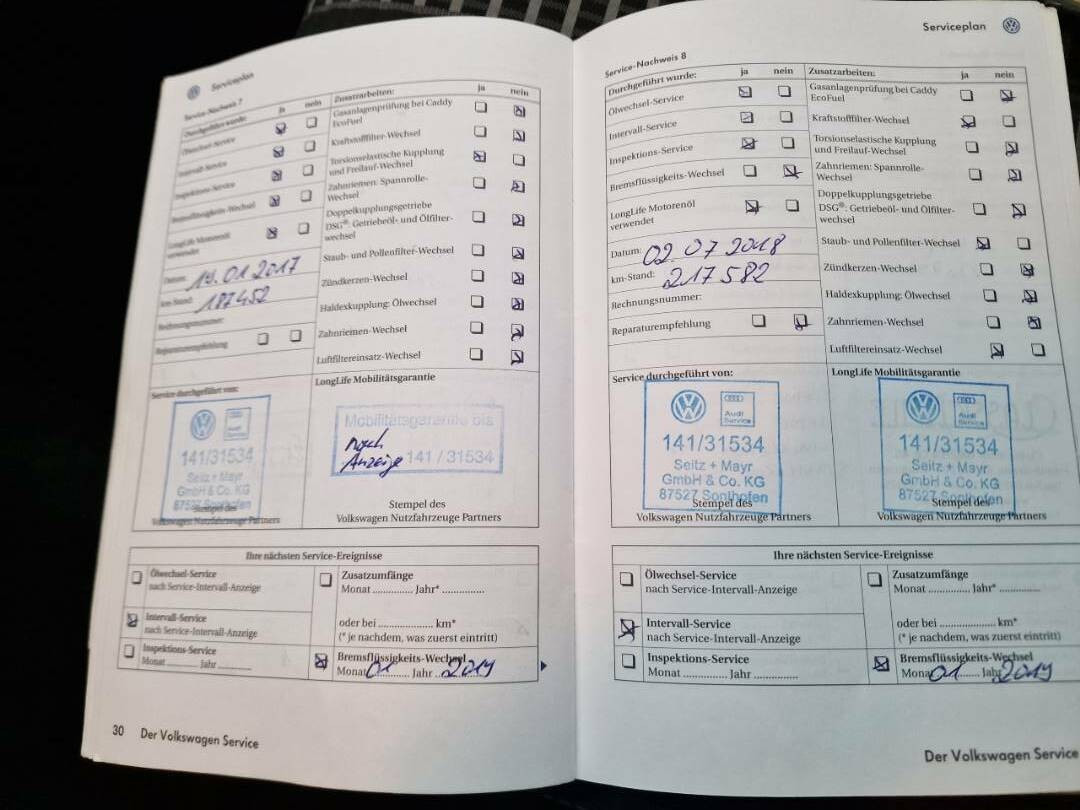 Serviceplan
Service-Nachweis 7
Durchgeführt wurde: ja nein
Ölwechsel-Service
Intervall-Service
Inspektions-Service
Bremsflüssigkeits-Wechsel
LongLife Motorenöl
verwendet
Datum: 19.01.2017
km-Stand: 187452
Rechnungsnummer:
Reparaturempfehlung
Zusatzarbeiten: ja nein
Gasanlagenprüfung bei Caddy
EcoFuel
Kraftstofffilter-Wechsel
Torsionselastische Kupplung
und Freilauf-Wechsel
Zahnriemen: Spannrolle-
Wechsel
Doppelkupplungsgetriebe
DSG®: Getriebeöl- und Ölfilter-
wechsel
Staub- und Pollenfilter-Wechsel
Zündkerzen-Wechsel
Haldexkupplung: Ölwechsel
Zahnriemen-Wechsel
Luftfiltereinsatz-Wechsel
Service durchgeführt von:
Audi
Service
141/31534
Seitz + Mayr
GmbH & Co. KG
87527 Sonthofen
Stempel des
Volkswagen Nutzfahrzeuge Partners
LongLife Mobilitätsgarantie
Mobilitätsgarantie bis
nach
Anzeige 141 / 31534
Stempel des
Volkswagen Nutzfahrzeuge Partners
Ihre nächsten Service-Ereignisse
Ölwechsel-Service
nach Service-Intervall-Anzeige
Intervall-Service
nach Service-Intervall-Anzeige
Inspektions-Service
Monat .............. Jahr ..............
Zusatzumfänge
Monat .............. Jahr* ..............
oder bei ........................ km*
(* je nachdem, was zuerst eintritt)
Bremsflüssigkeits-Wechsel
Monat 01 Jahr 2019
30 Der Volkswagen Service
Serviceplan
Service-Nachweis 8
Durchgeführt wurde: ja nein
Ölwechsel-Service
Intervall-Service
Inspektions-Service
Bremsflüssigkeits-Wechsel
LongLife Motorenöl
verwendet
Datum: 02.07.2018
km-Stand: 217582
Rechnungsnummer:
Reparaturempfehlung
Zusatzarbeiten: ja nein
Gasanlagenprüfung bei Caddy
EcoFuel
Kraftstofffilter-Wechsel
Torsionselastische Kupplung
und Freilauf-Wechsel
Zahnriemen: Spannrolle-
Wechsel
Doppelkupplungsgetriebe
DSG®: Getriebeöl- und Ölfilter-
wechsel
Staub- und Pollenfilter-Wechsel
Zündkerzen-Wechsel
Haldexkupplung: Ölwechsel
Zahnriemen-Wechsel
Luftfiltereinsatz-Wechsel
Service durchgeführt von:
Audi
Service
141/31534
Seitz + Mayr
GmbH & Co. KG
87527 Sonthofen
Stempel des
Volkswagen Nutzfahrzeuge Partners
LongLife Mobilitätsgarantie
Audi
Service
141/31534
Seitz + Mayr
GmbH & Co. KG
87527 Sonthofen
Stempel des
Volkswagen Nutzfahrzeuge Partners
Ihre nächsten Service-Ereignisse
Ölwechsel-Service
nach Service-Intervall-Anzeige
Intervall-Service
nach Service-Intervall-Anzeige
Inspektions-Service
Monat .............. Jahr ..............
Zusatzumfänge
Monat .............. Jahr* ..............
oder bei ........................ km*
(* je nachdem, was zuerst eintritt)
Bremsflüssigkeits-Wechsel
Monat 01 Jahr 2019
Der Volkswagen Service